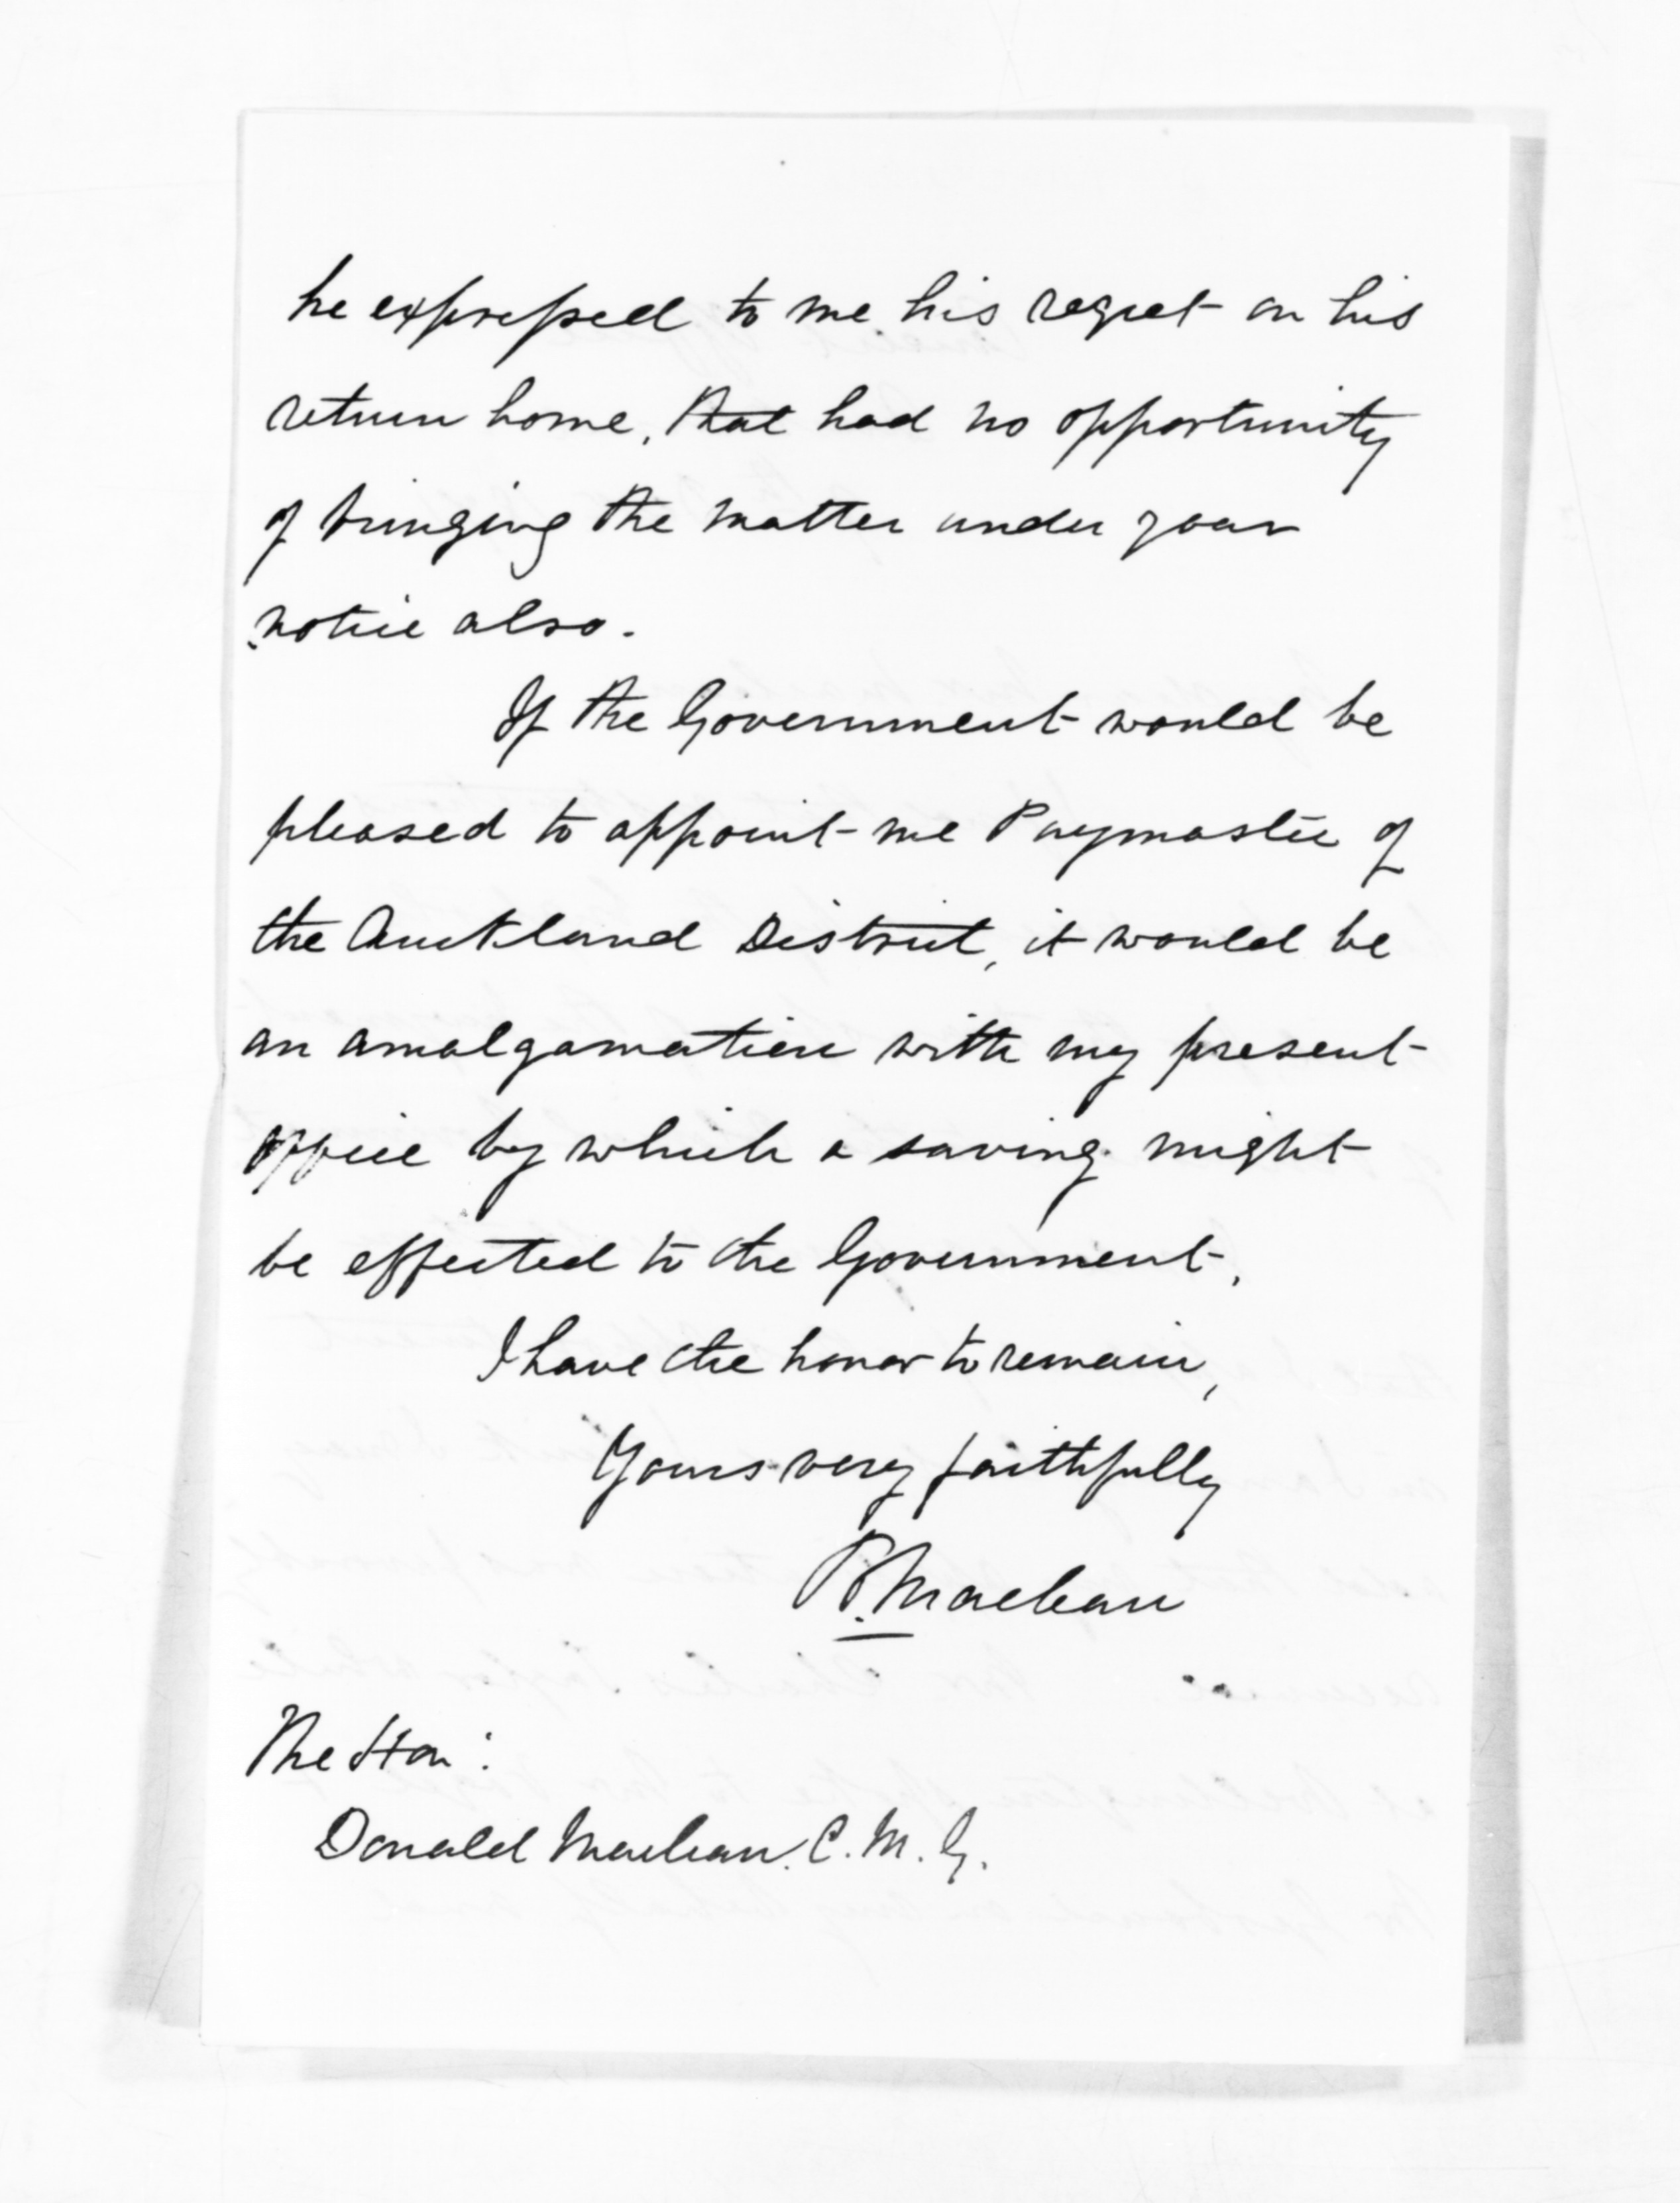 he expressed to me his regret on his
return home, that had no opportunity
of bringing the matter under your
notice also.
If the Government would be
pleased to appoint me Paymaster of
the Auckland District, it would be
an amalgamation with my present
office by which a saving might
be effected to the Government.
I have the honor to remain,
Yours very faithfully
P. Maclean
The Hon:
Donald Maclean. C. M. G.